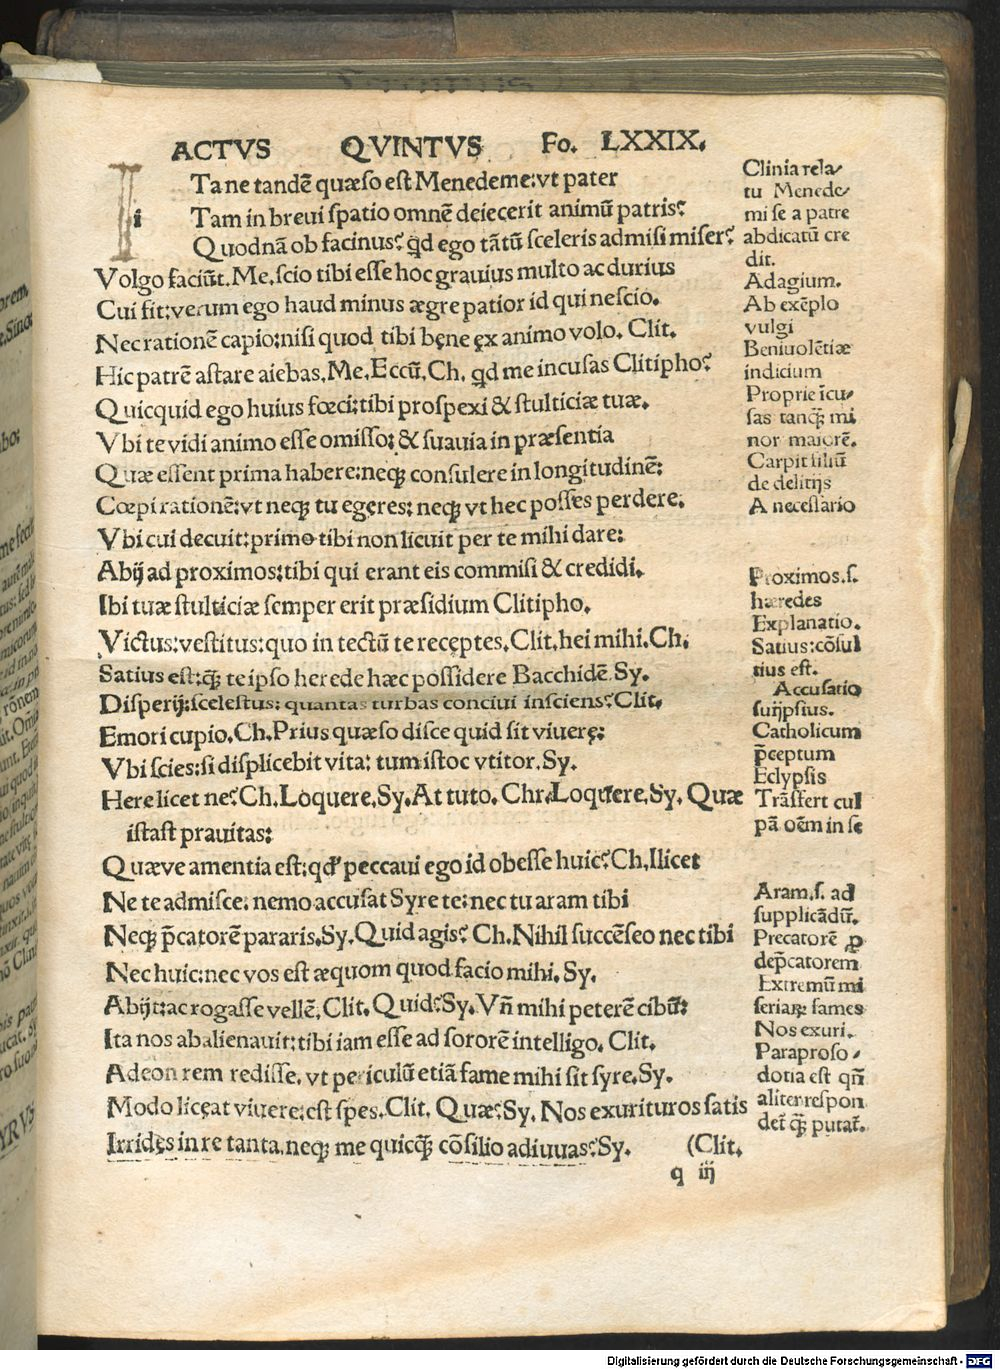 ACTVS QVINTVS Fo. LXXIX.
i Ta ne tandē quæso est Menedeme: vt pater
Tam in breui spatio omnē deiecerit animū patris?
Quodnā ob facinus? qd ego tātū sceleris admisi miser?
Volgo faciūt. Me. scio tibi esse hoc grauius multo ac durius
Cui fit: verum ego haud minus ægre patior id qui nescio.
Nec rationē capio: nisi quod tibi bęne ęx animo volo. Clit.
Hic patrē astare aiebas. Me. Eccū. Ch. qd me incusas Clitipho?
Quicquid ego huius fœci: tibi prospexi & stulticiæ tuæ.
Vbi te vidi animo esse omisso: & suauia in præsentia
Quæ essent prima habere: neqꝫ consulere in longitudinē:
Cœpi rationē: vt neqꝫ tu egeres: neqꝫ vt hec posses perdere.
Vbi cui decuit: primo tibi non licuit per te mihi dare:
Abij ad proximos: tibi qui erant eis commisi & credidi.
Ibi tuæ stulticiæ semper erit præsidium Clitipho.
Victus: vestitus: quo in tectū te recęptes. Clit. hei mihi. Ch.
Satius est: qꝫ te ipso herede hæc possidere Bacchidē. Sy.
Disperij: scelestus: quantas turbas conciui insciens? Clit.
Emori cupio. Ch. Prius quæso disce quid sit viuerę:
Vbi scies: si displicebit vita: tum istoc vtitor. Sy.
Here licet ne? Ch. Loquere. Sy. At tuto. Chr. Loquere. Sy. Quæ
istast prauitas:
Quæve amentia est: qd peccaui ego id obesse huic? Ch. Ilicet
Ne te admisce. nemo accusat Syre te: nec tu aram tibi
Neqꝫ p̄catorē pararis. Sy. Quid agis? Ch. Nihil succēseo nec tibi
Nec huic: nec vos est æquom quod facio mihi. Sy.
Abijt: ac rogasse vellē. Clit. Quid? Sy. Vn̄ mihi peterē cibū:
Ita nos abalienauit: tibi iam esse ad sororē intelligo. Clit.
Adeon rem redisse. vt periculū etiā fame mihi sit syre. Sy.
Modo licęat viuere: est spes. Clit. Quæ? Sy. Nos exurituros satis
Irridęs in re tanta. neqꝫ me quicqꝫ cōsilio adiuuas? Sy. (Clit.
q iij
Clinia rela-
tu Menede-
mi se a patre
abdicatū cre
dit.
Adagium.
Ab exēplo
vulgi
Beniuolētiæ
indicium
Proprie īcu-
sas tanqꝫ mi
nor maiorē.
Carpit filiū
de delitijs
A necessario
Proximos. s.
hæredes
Explanatio.
Satius: cōsul
tius est.
Accusatio
suijpsius.
Catholicum
p̄ceptum
Eclypsis
Trāsfert cul
pā oēm in se
Aram. s. ad
supplicādū.
Precatorē ꝑ
dep̄catorem
Extremū mi
seriaꝝ fames
Nos exuri.
Paraproso-
dotia est qn̄
aliter respon
det qꝫ putat.
Digitalisierung gefördert durch die Deutsche Forschungsgemeinschaft - DFG